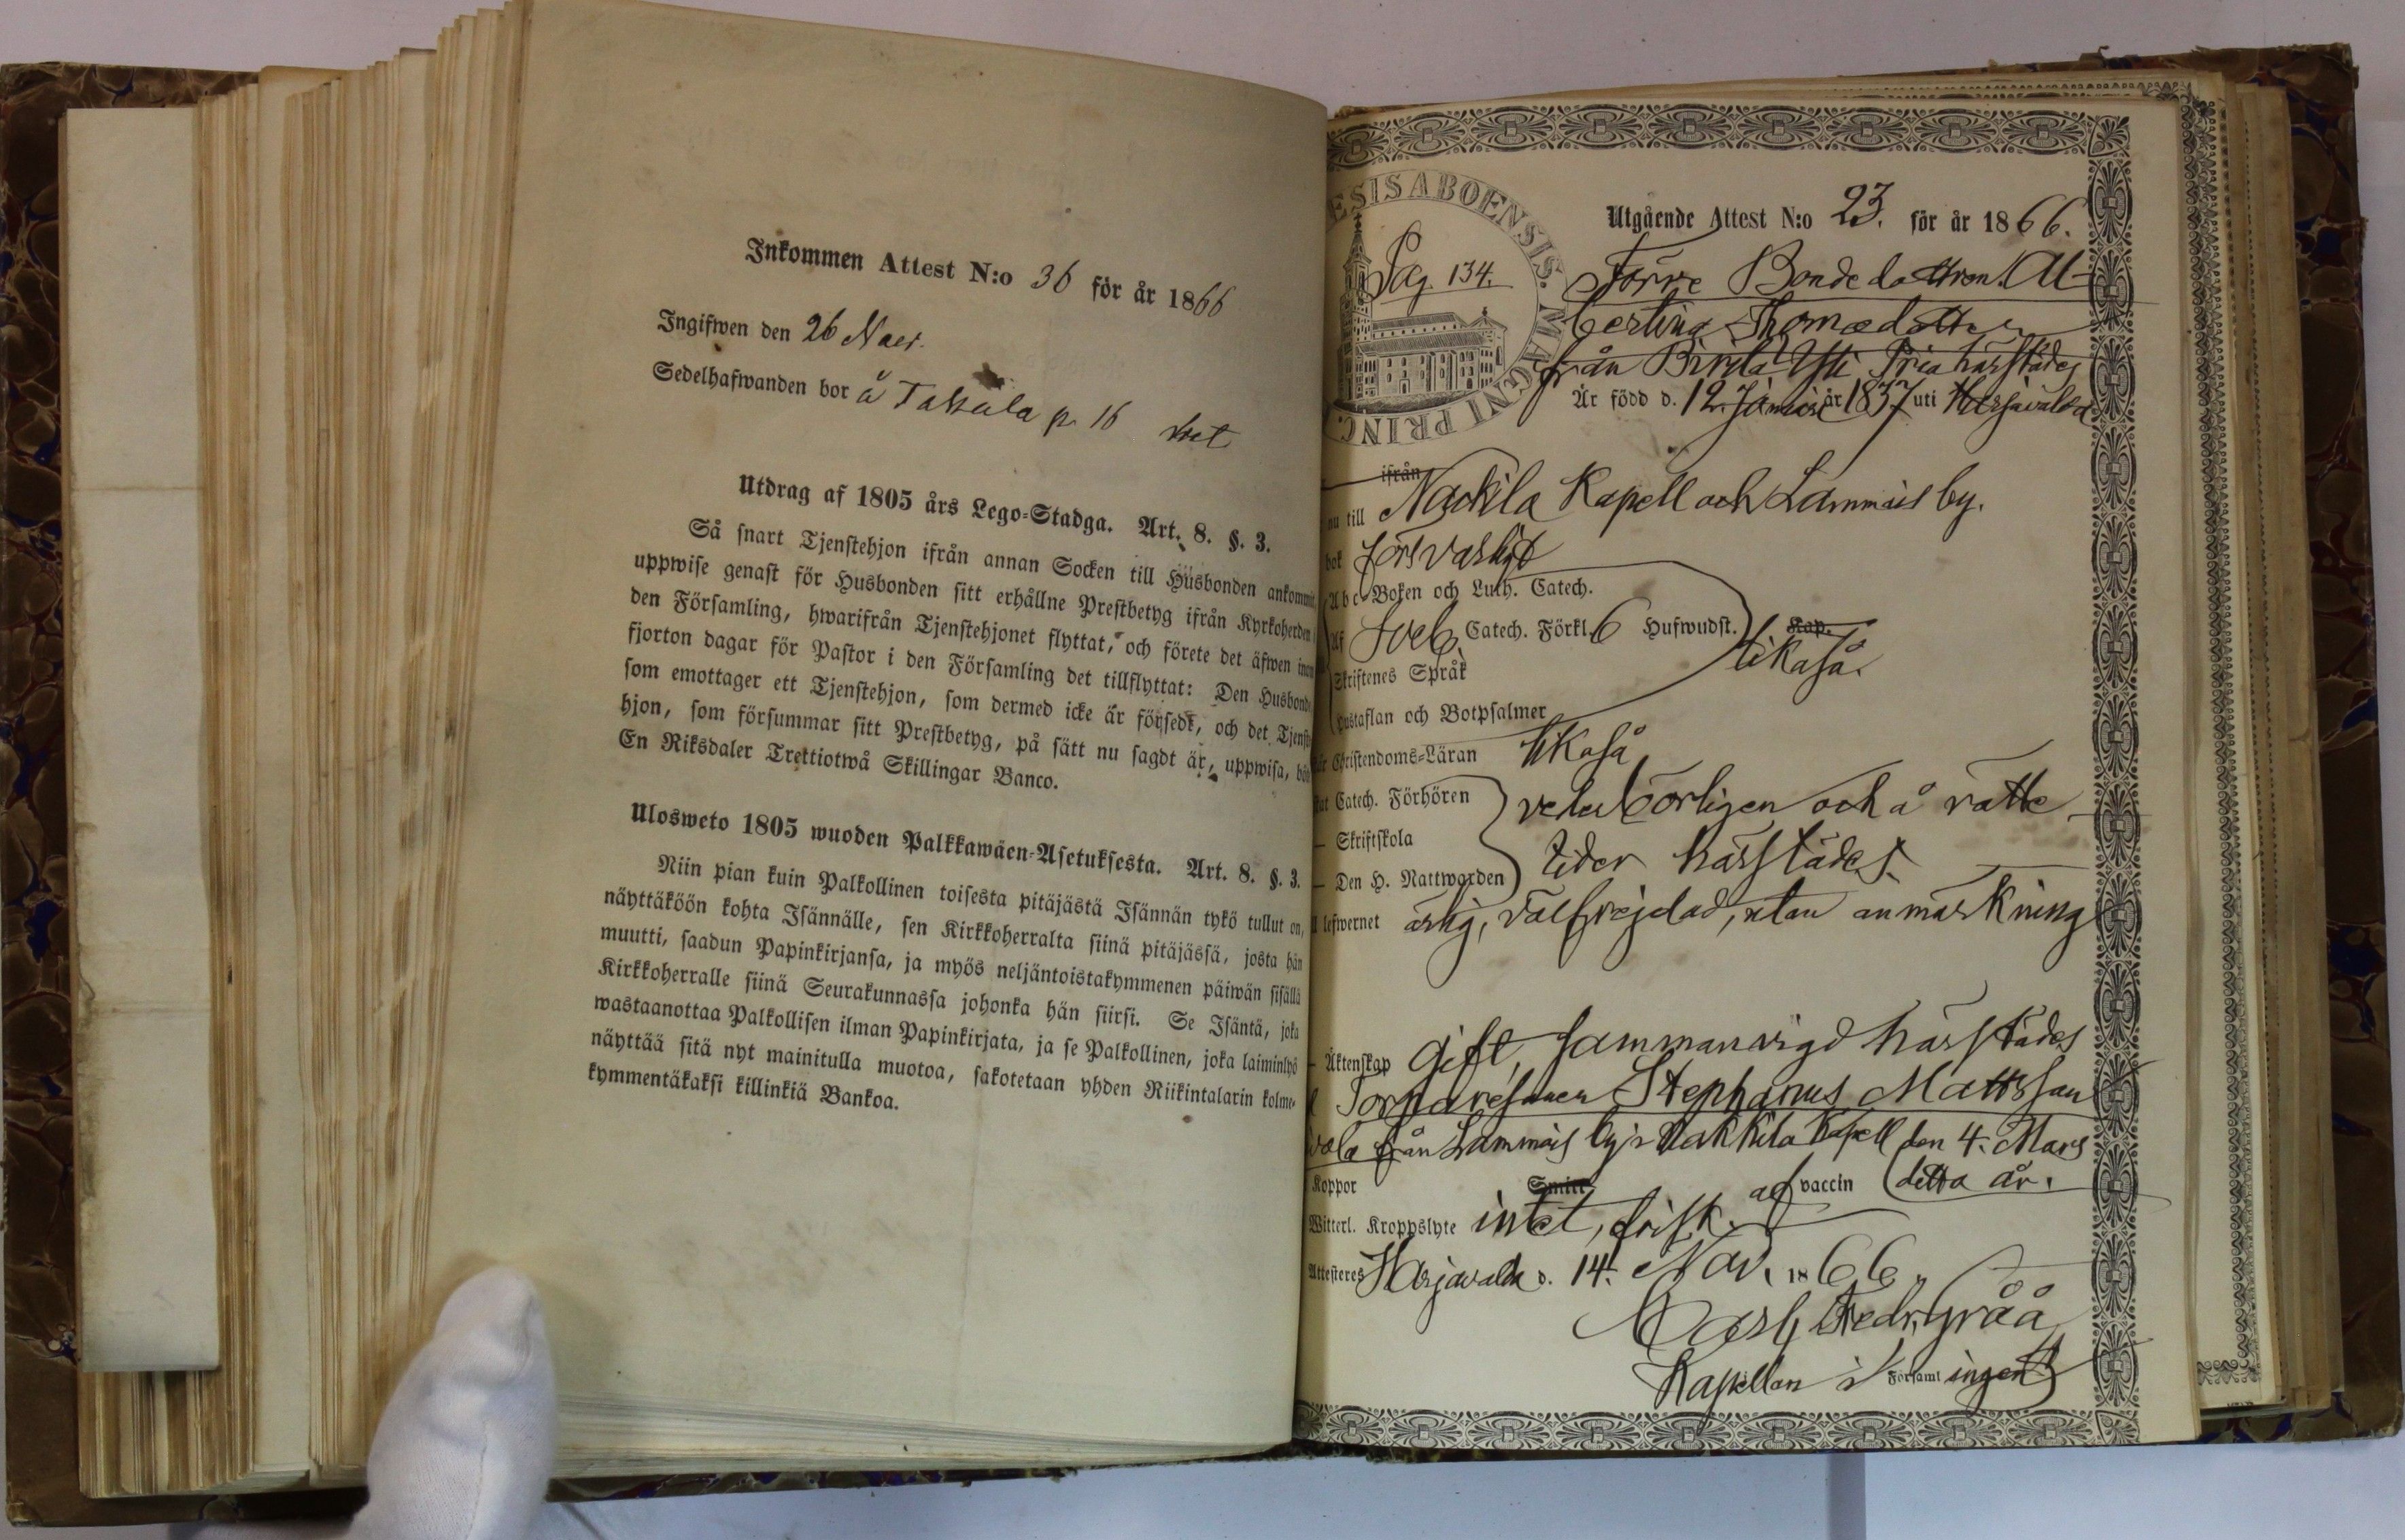 Inkommen Attest N:o 36 för år 1866
Ingifwen den 26 Nov.
Sedelhafwanden bor å p. 16
Utdrag af 1805 års Lego-Stadga. Art. 8. §. 3.
Så snart Tjenstehjon ifrån annan Socken till Husbonden ankommit,
uppwise genast för Husbonden sitt erhållne Prestbetyg ifrån Kyrkoherden
den Församling, hwarifrån Tjenstehjonet flyttat, och förete det äfwen inom
fjorton dagar för Pastor i den Församling det tillflyttat: Den Husbonde
som emottager ett Tjenstehjon, som dermed icke är försedt, och det Tjenste-
hjon, som försummar sitt Prestbetyg, på sätt nu sagdt är, uppwisa, böte
En Riksdaler Trettiotwå Skillingar Banco.
Ulosweto 1805 wuoden Palkkawäen-Asetuksesta. Art. 8. §. 3.
Niin pian kuin Palkollinen toisesta pitäjästä Isännän tykö tullut on,
näyttäköön kohta Isännälle, sen Kirkkoherralta siinä pitäjässä, josta hän
muutti, saadun Papinkirjansa, ja myös neljäntoistakymmenen päiwän sisällä
Kirkkoherralle siinä Seurakunnassa johonka hän siirsi. Se Isäntä, joka
wastaanottaa Palkollisen ilman Papinkirjata, ja se Palkollinen, joka laiminlyö
näyttää sitä nyt mainitulla muotoa, sakotetaan yhden Riikintalarin kolme-
kymmentäkaksi killinkiä Bankoa.
ESIS ABOENSIS. MAGNI PRINC
Pag. 134.
Utgående Attest N:o 23. för år 1866.
Förre Bondedottren Al-
bertina Thomasdotter
från Pirilä Ysti Pria härstädes
Är född d. 12 Januari år 1837 uti Harjavalda
ifrån
nu till Nackila Kapell och Lammais by.
bok försvarligt
Abc-Boken och Luth. Catech.
Af Sveb. Catech. Förkl. 6 Hufwudst. Kap.
likaså.
Skriftenes Språk
Hustaflan och Botpsalmer
Christendoms-Läran likaså
Catech. Förhören vederbörligen och å rätte
Skriftskola
tider härstädes.
Den H. Nattwarden
lefwernet ärlig, välfrejdad, utan anmärkning
Äktenskap gift, sammanvigd härstädes
Torparesonen Stephanus Mattsson
från Lammais by i Nakkila Kapell den 4. Mars
Koppor Smitt af vaccin detta år.
Witterl. Kroppslyte intet, frisk.
Attesteres Harjavalda d. 14. Nov. 1866.
Carl Fredr. Gråå
Kapellan i Församlingen